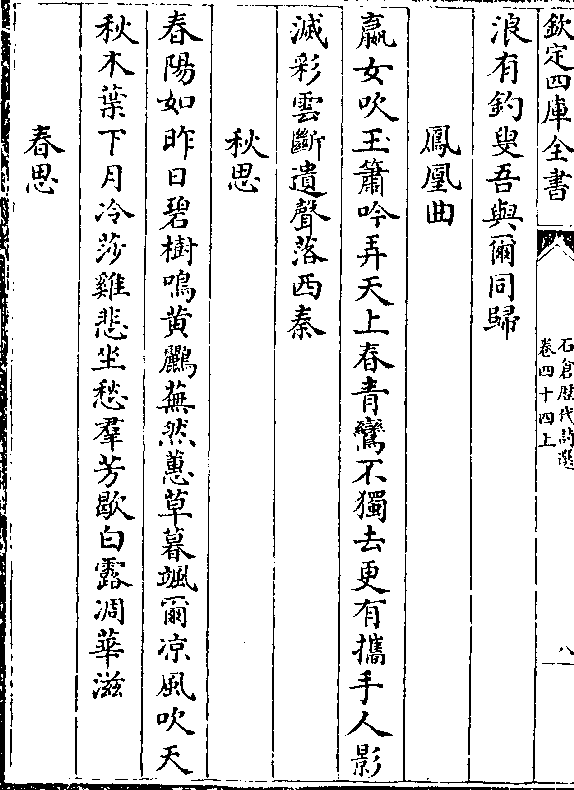 欽定四庫全書
石倉歷代詩選
卷四十四上
八
浪有釣叟吾與爾同歸
鳳凰曲
嬴女吹玉簫吟弄天上春青鸞不獨去更有攜手人影
滅彩雲斷遺聲落西秦
秋思
春陽如昨日碧樹鳴黄鸝蕪然蕙草暮颯爾凉風吹天
秋木葉下月冷莎雞悲坐愁羣芳歇白露凋華滋
春思